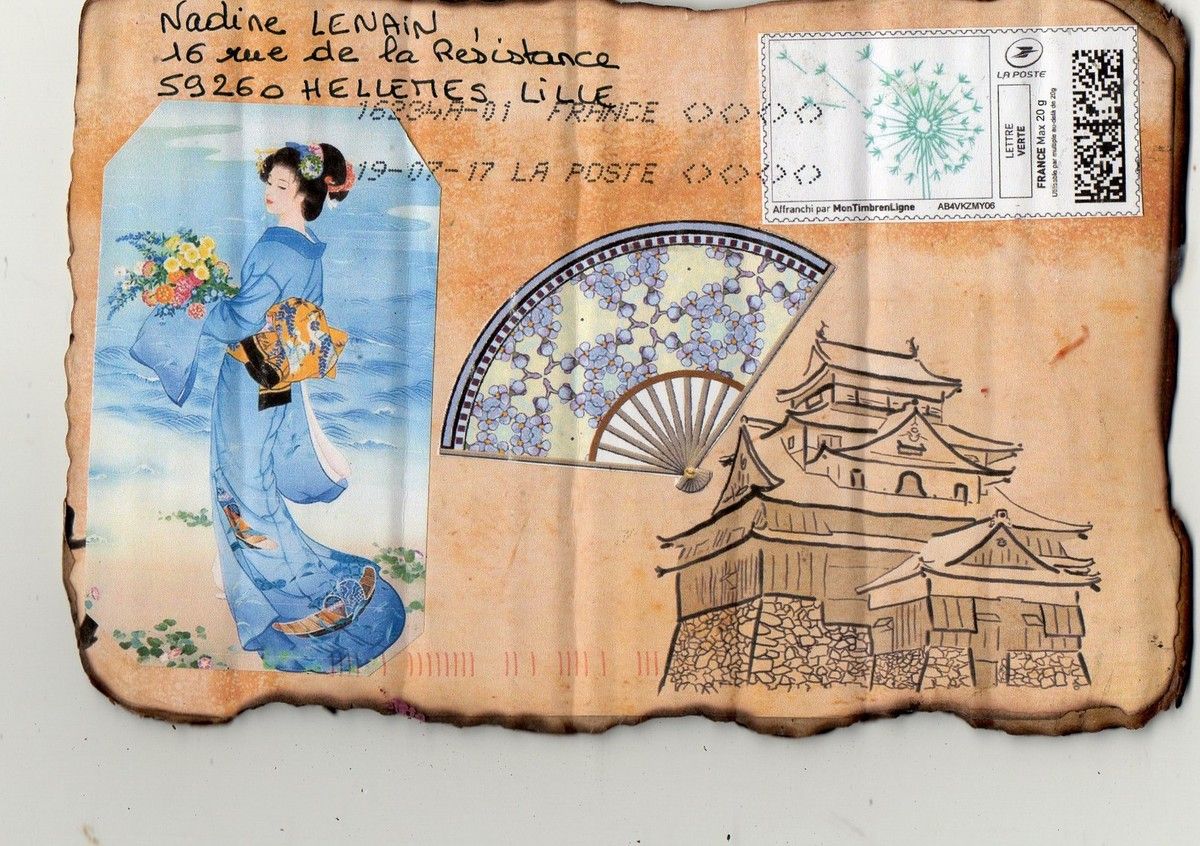 Nadine LENAIN
16 rue de la Résistance
59260 HELLEMES LILLE
16284A-01 FRANCE
19-07-17 LA POSTE
LA POSTE
LETTRE
VERTE
FRANCE Max 20 g
Utilisable par multiple au-delà de 20g
Affranchi par MonTimbrenLigne AB4VKZMY06